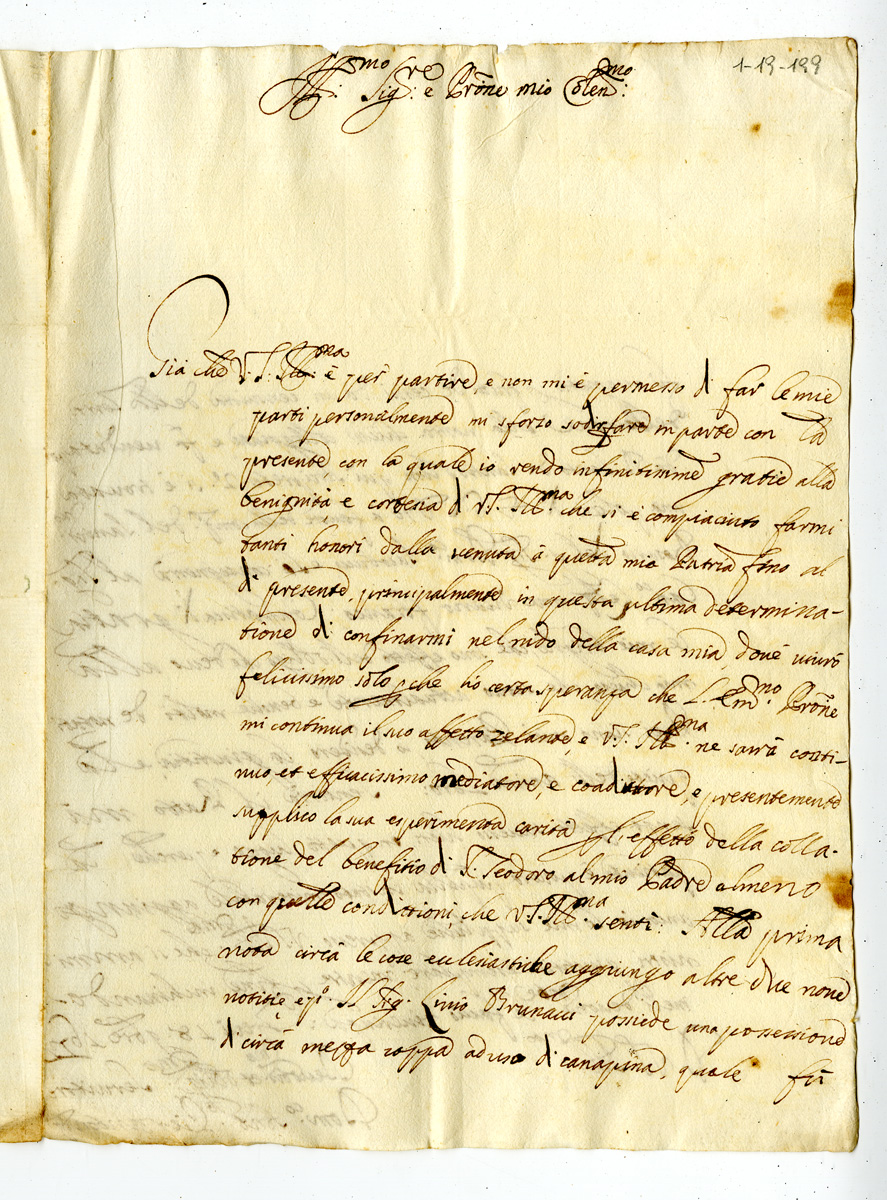 1-19-199
Ill:mo Sig:re e Prõne mio Colen:mo
Già che V.S. Ill:ma è per partire, e non mi è permesso di far le mie
parti personalmente mi sforzo sodisfare in parte con la
presente con la quale io rendo infinitissime gratie alla
benignità e cortesia di V.S. Ill:ma che si è compiaciuto farmi
tanti honori dalla venuta à questa mia Patria fino al
di presente, principalmente in questa ultima determina-
tione di confinarmi nel nido della casa mia, dove vivrò
felicissimo solo p che ho certa speranza che L. Em:mo Prõne
mi continua il suo affetto zelante, e V.S. Ill:ma ne sarrà conti-
nuo, et efficacissimo mediatore, e coadiutore, e presentemente
supplico la sua esperimenta carità p l'effetto della colla-
tione del benefitio di S. Teodoro al mio Padre almeno
con quelle condittioni, che V.S. Ill:ma sentì: Alla prima
nota circa le cose ecclesiastiche aggiungo altre due nove
notitie, e p.o Il Sig. Livio Brunacci possiede una possessione
di circa mezza coppa ad uso di canapina, quale fù